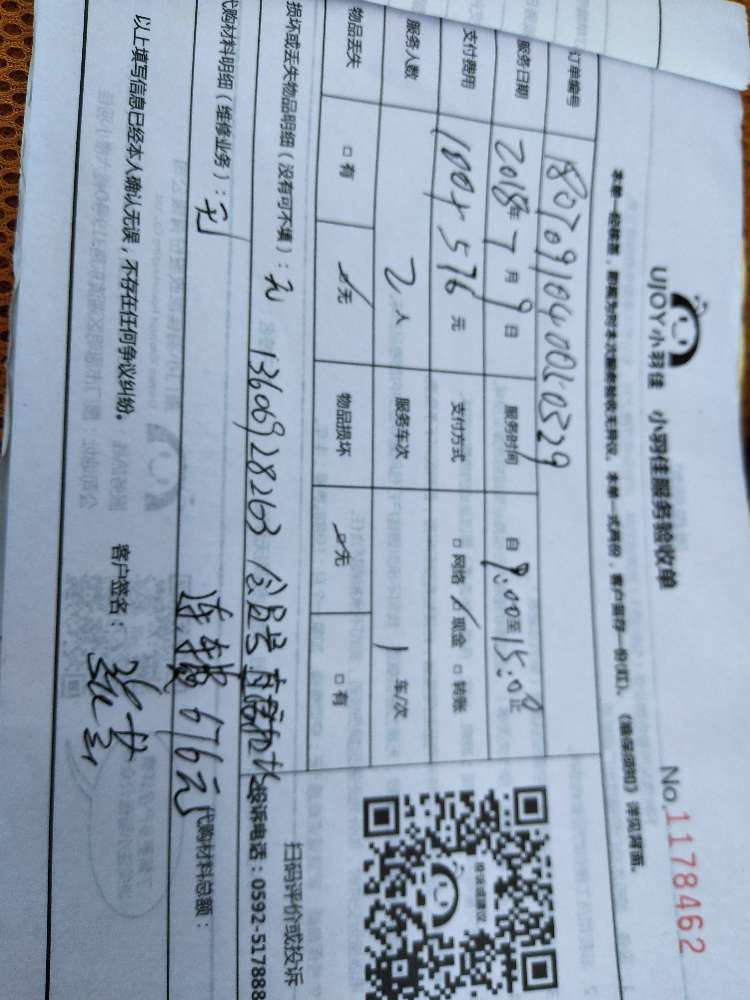 UJOY小羽佳 小羽佳服务验收单
No.1178462
本单一经签署，即视为对本次服务验收无异议。本单一式两份，客户留存一份(红)。《维保须知》详见背面。
订单编号 18070910400250329
服务日期 2018年7月9日 服务时间 自9:00至15:00止
支付费用 100+576元 支付方式 □网络 ☑现金 □转账
服务人数 2人 服务车次 1车/次
物品丢失 □有 ☑无 物品损坏 ☑无 □有
扫码评价或投诉
投诉或建议
损坏或丢失物品明细（没有可不填）：无 13606928263 会员号
投诉电话：0592-517888
代购材料明细（维修业务）：无 676元 代购材料总额：
以上填写信息已经本人确认无误，不存在任何争议纠纷。 客户签名：